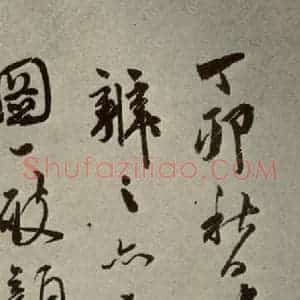 丁卯秋日
辨之亦
圖一破顏
Shufaziliao.COM